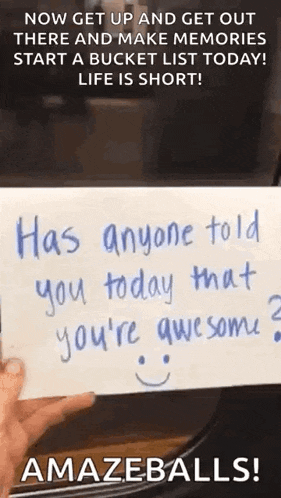 NOW GET UP AND GET OUT
THERE AND MAKE MEMORIES
START A BUCKET LIST TODAY!
LIFE IS SHORT!
Has anyone told
you today that
you're awesome?
AMAZEBALLS!